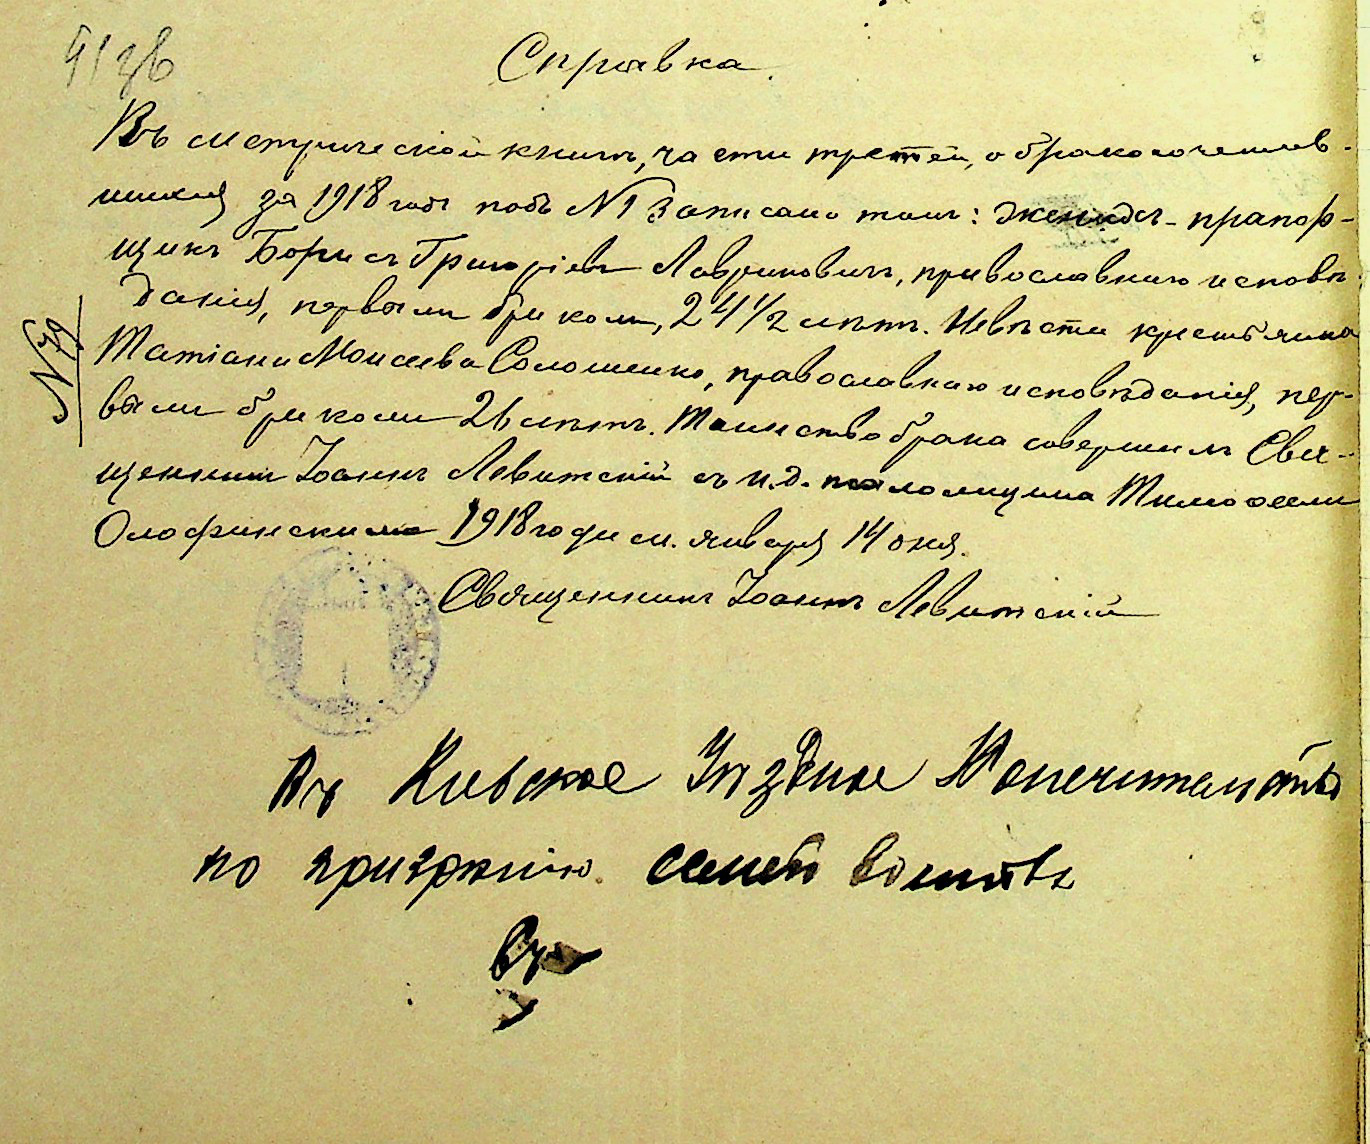 Справка.
Въ метрической книгѣ, части третей, о бракосочетав-
шихся за 1918 годъ подъ №1 записано такъ: женихъ - прапор-
щикъ Борисъ Григоріевъ Лавриновичъ, православнаго исповѣ-
данія, первымъ бракомъ, 24½ лѣтъ. Невѣста крестьянка
Татіана Моисеева Солошенко, православнаго исповѣданія, пер-
вымъ бракомъ 26 лѣтъ. Таинство брака совершилъ Свя-
щенникъ Іоаннъ Левитскій съ и.д. псаломщика Тимофеемъ
Олофинскимъ 1918 года м. января 14 дня.
Священникъ Іоаннъ Левитскій
№ 79
Въ Кіевское Уѣздное Попечительство
по призрѣнію семей воиновъ